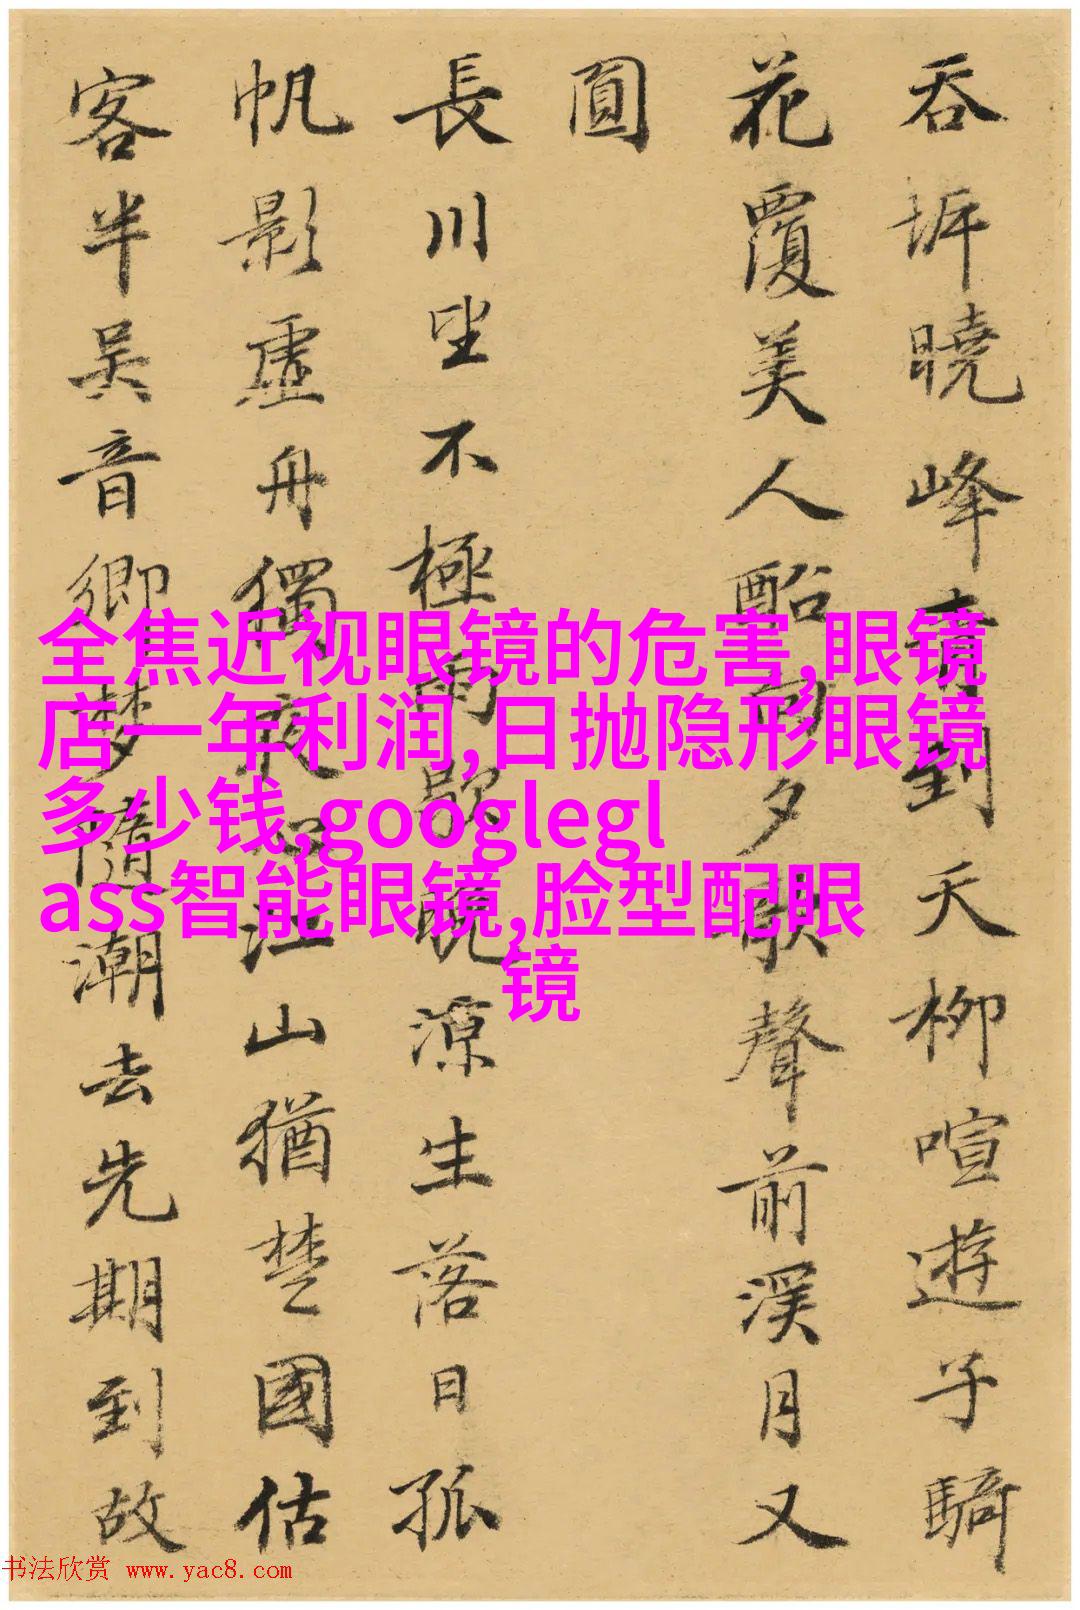 吞坼曉峰青到天柳喧遊子騎
花覆美人船向夕歌聲前溪月又
圓
長川坐不極雨歇晚涼生落日孤
帆影虛舟獨夜心江山猶楚國估
客半吳音鄉夢隨潮去先期到故
全焦近视眼镜的危害,眼镜
店一年利润,日抛隐形眼镜
多少钱,googlegl
ass智能眼镜,脸型配眼
镜
书法欣赏 www.yac8.com